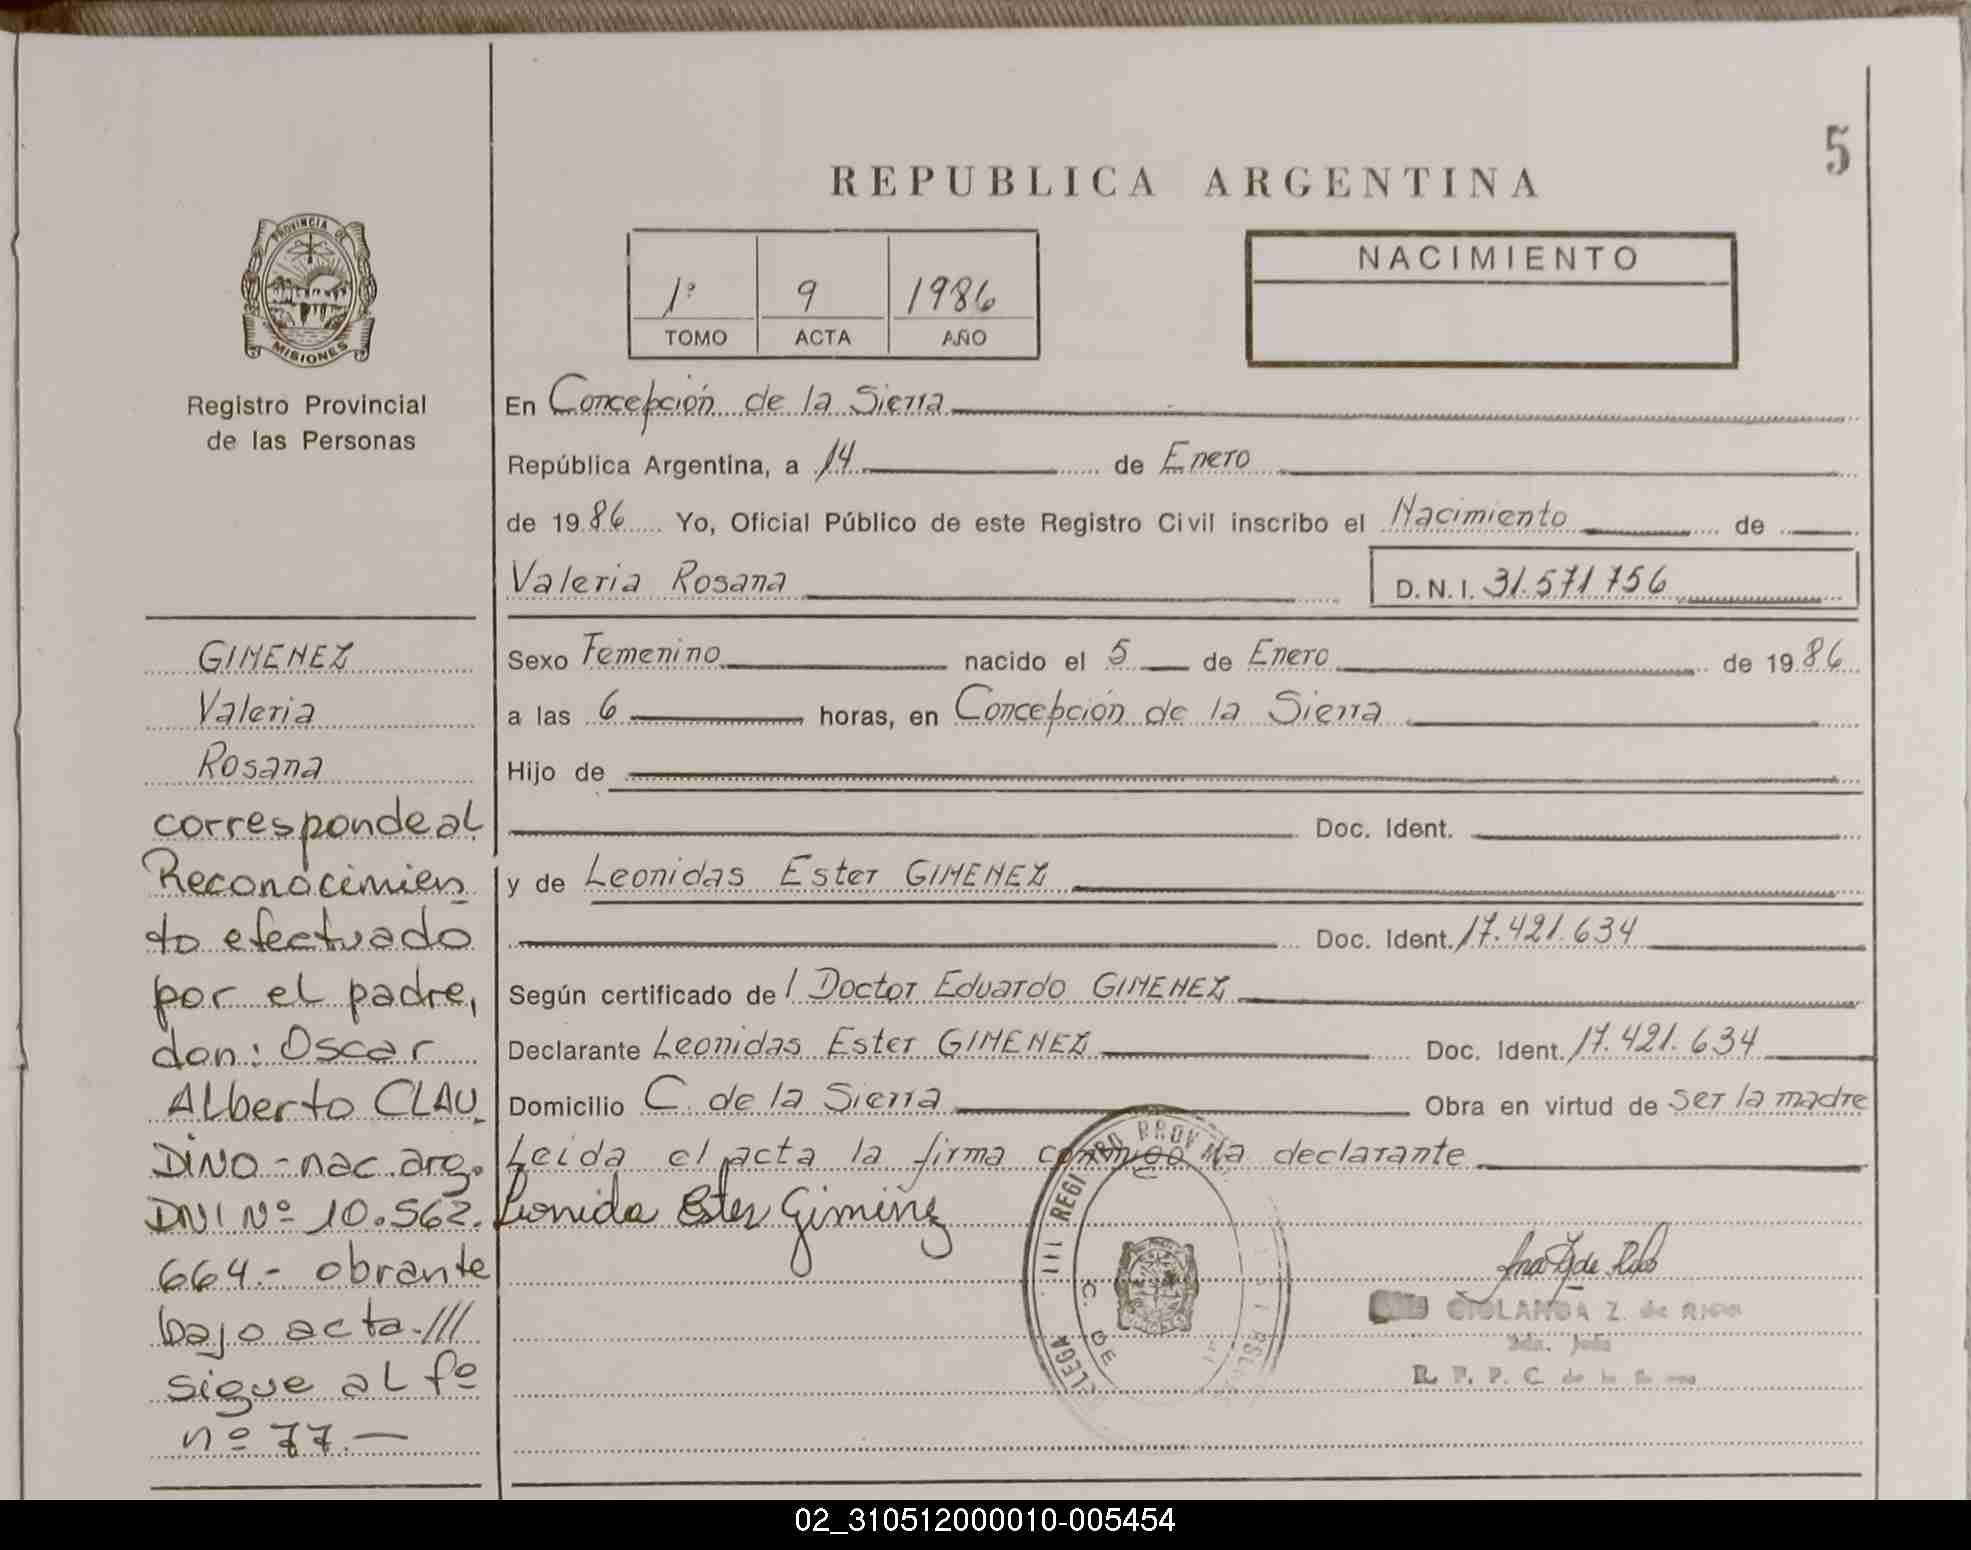 5
REPUBLICA ARGENTINA
PROVINCIA DE
MISIONES
Registro Provincial
de las Personas
1º 9 1986
TOMO ACTA AÑO
NACIMIENTO
En Concepción de la Sierra
República Argentina, a 14 de Enero
de 1986 Yo, Oficial Público de este Registro Civil inscribo el Nacimiento de
Valeria Rosana D.N.I. 31.571756
Sexo Femenino nacido el 5 de Enero de 1986
a las 6 horas, en Concepción de la Sierra
Hijo de
Doc. Ident.
y de Leonidas Ester GIMENEZ
Doc. Ident. 17.421.634
Según certificado del Doctor Eduardo GIMENEZ
Declarante Leonidas Ester GIMENEZ Doc. Ident. 17.421.634
Domicilio C. de la Sierra Obra en virtud de ser la madre
Leida el acta la firma conmigo la declarante
Leonida Ester Gimenez
GIMENEZ
Valeria
Rosana
corresponde al
Reconocimien
to efectuado
por el padre,
don: Oscar
Alberto CLAU
DINO - nac. arg.
DNI Nº 10.562.
664.- obrante
bajo acta.///
sigue al fº
nº 77.—
REGISTRO PROV
C. DE
Z. de
R. P. P. C. de la
02_310512000010-005454